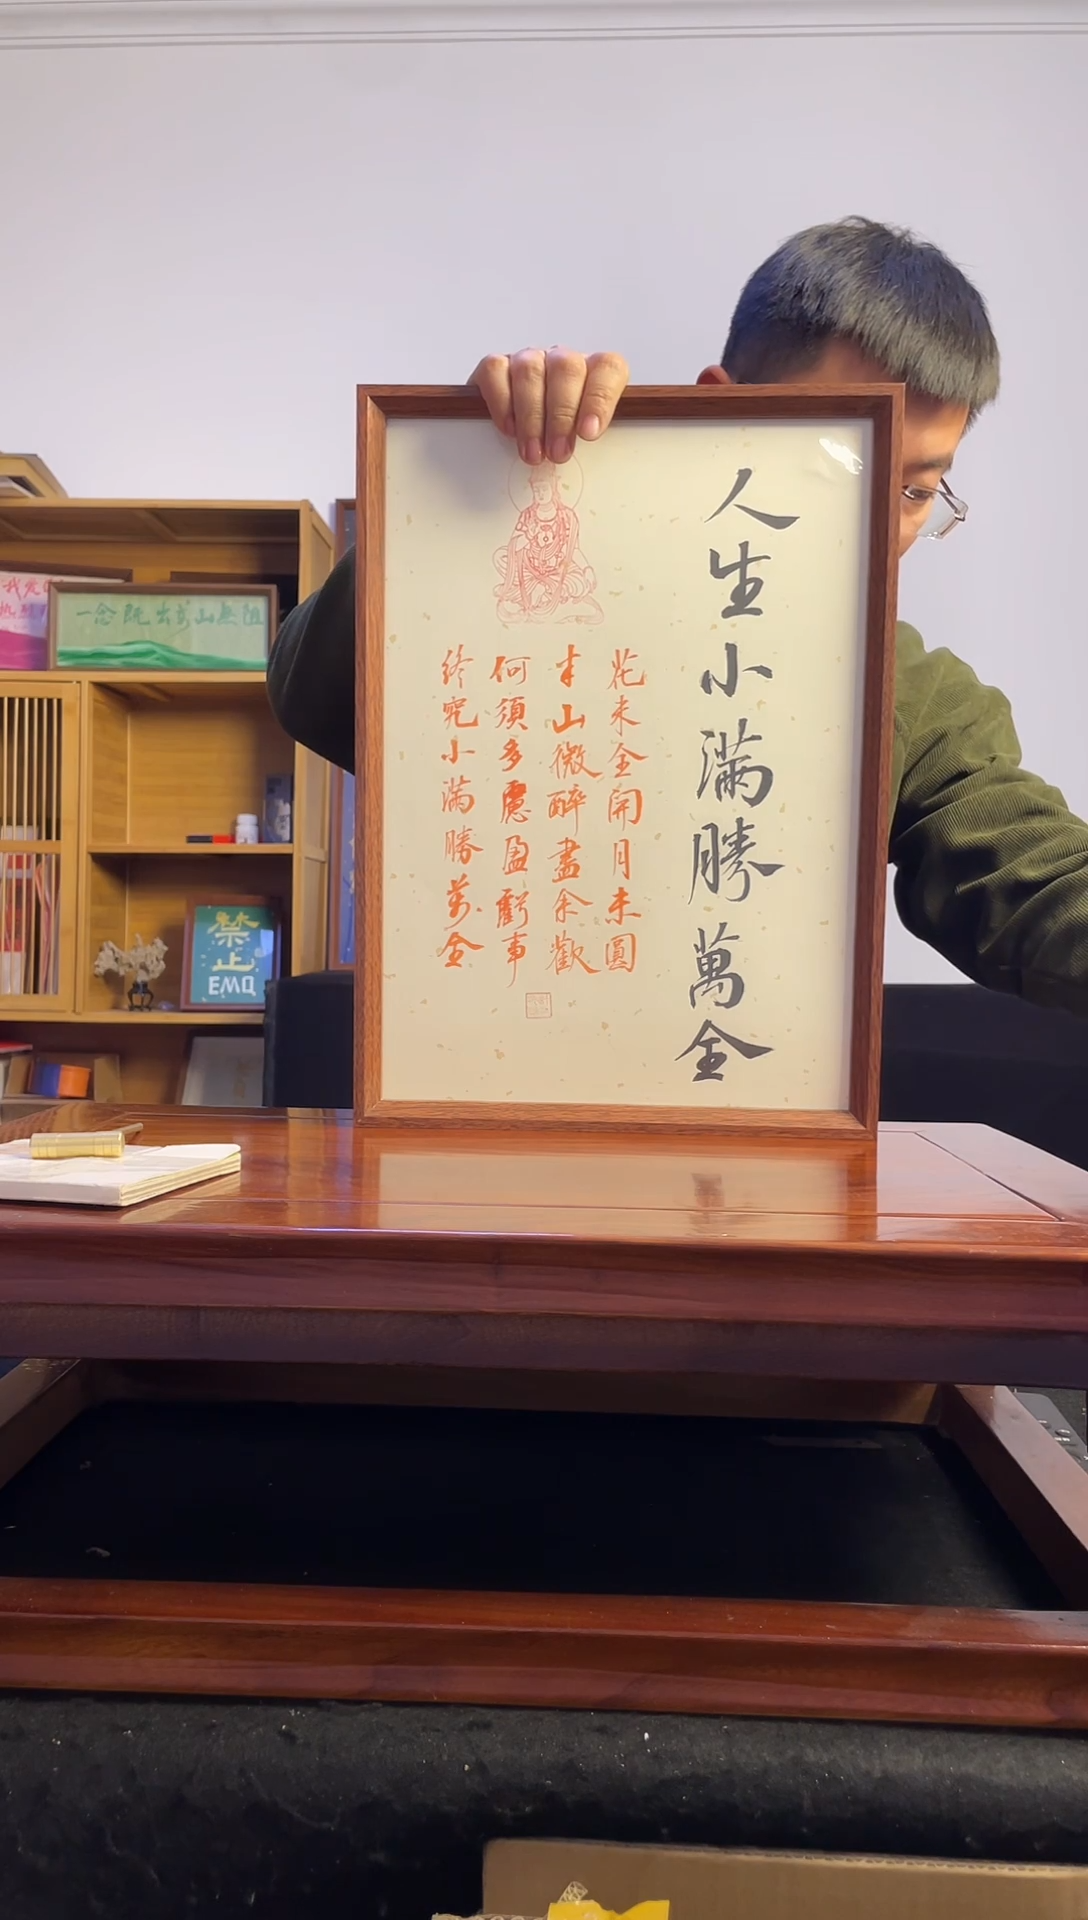 人生小满勝萬全
花未全開月未圓
半山微醉盡余歡
何須多慮盈虧事
終究小满勝萬全
一念既出萬山無阻
我爱
热烈
禁止
EMO